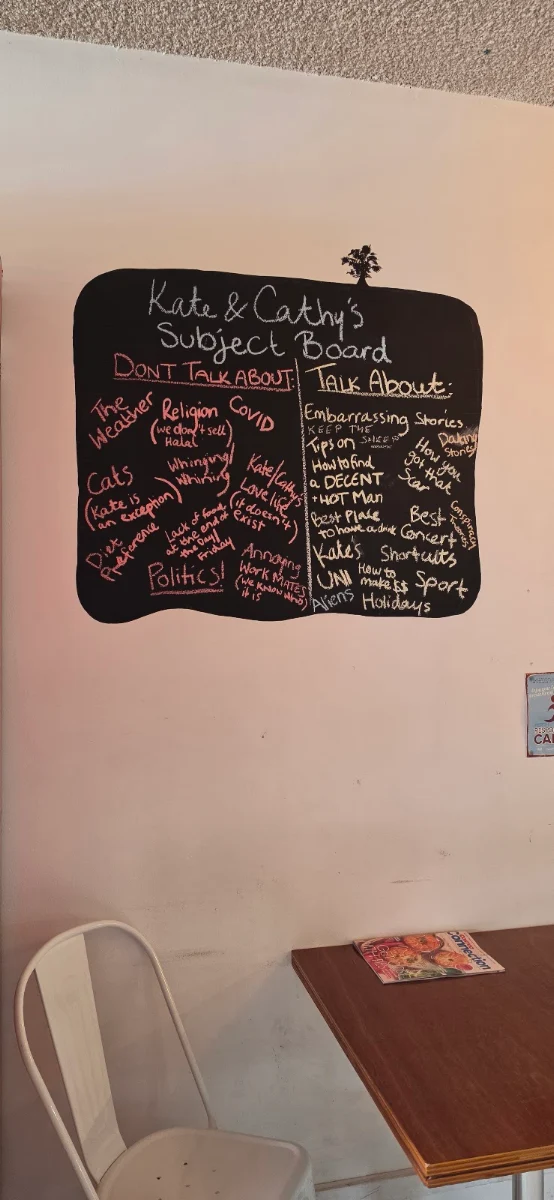 Kate & Cathy's
Subject Board
DONT TALK ABOUT:
The
Weather
Religion
(we don't sell
Halal)
COVID
Cats
(Kate is
an exception)
Whinging/
Whining
Kate/Cathy's
Love life
(it doesn't
exist)
Diet
Preference
Lack of food
at the end of
the Day/
Friday
Politics!
Annoying
Work MATES
(we know who
it is
TALK About:
Embarrassing Stories
KEEP THE
Tips on
How to find
a DECENT
+ HOT Man
How you
got that
Scar
Dating
Stories
Best Place
to have a drink
Best
Concert
Conspiracy
Kate's Shortcuts
UNI
How to
make $$
Sport
Aliens
Holidays
Connection